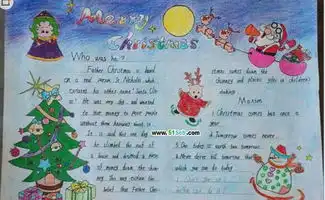 Merry
Christmas
Who was he?
Father Christmas is based
on a real person, St. Nicholas, which
explains his other name "Santa Cla-
us". He was very shy, and wanted
to give money to poor people
without them knowing about it.
It is said that one day,
he climbed the
a house and dropped a purse
of money down the
chimney. This was
belief that Father Chr-
istmas comes down the
chimney and places gifts in children's
stockings.
Maxim
1. Christmas comes but once a
year
2. Tomorrow comes never.
3. One today is worth two tomorrows.
4. Never defer till tomorrow that
which you can do today
www.51
.com